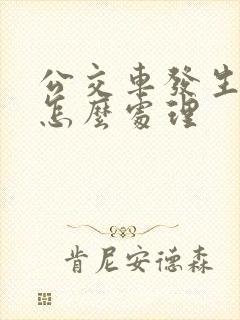 公交車發生
怎麼處理
肯尼安德森